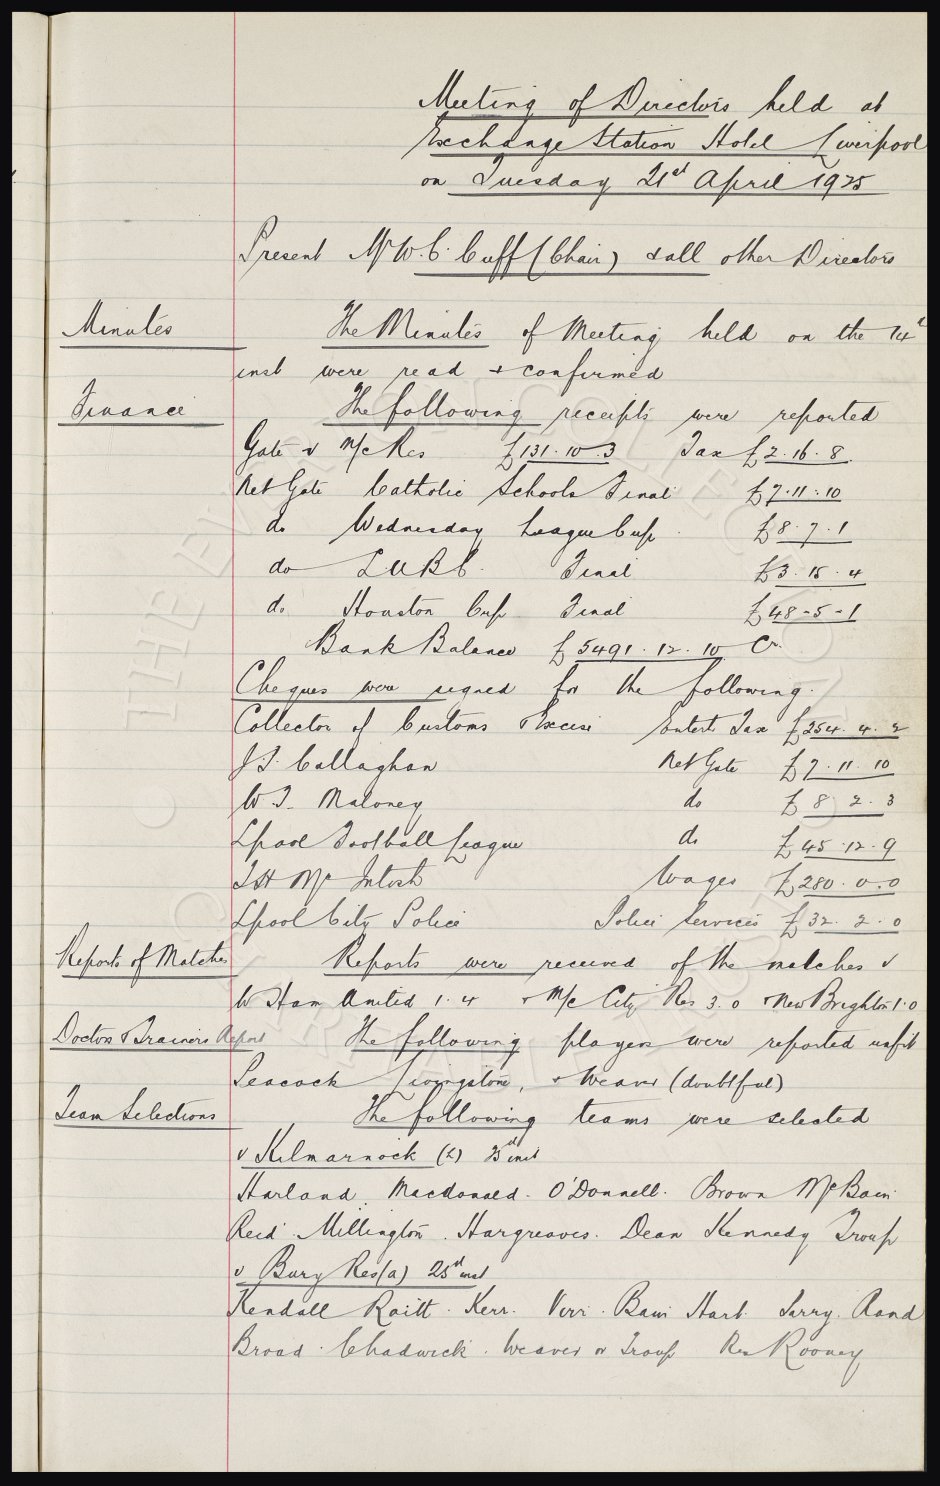 Meeting of Directors held at
Exchange Station Hotel Liverpool
on Tuesday 21st April 1925
Present Mr W. C. Cuff (Chair) & all other Directors
Minutes The Minutes of Meeting held on the 14th
inst were read & confirmed
Finance The following receipts were reported
Gate v M/c Res £131.10.3 Tax £2.16.8
Net Gate Catholic Schools Final £7.11.10
do Wednesday League Cup £8.7.1
do L.U.B.C. Final £3.15.4
do Houston Cup Final £48-5-1
Bank Balance £5491.12.10 Cr
Cheques were signed for the following.
Collector of Customs & Excise Entert Tax £254.4.2
J. T. Callaghan Net Gate £7.11.10
W. J. Maloney do £8 2.3
Lpool Football League do £45.12.9
T H Mc Intosh Wages £280.0.0
Lpool City Police Police Services £32.2.0
Reports of Matches Reports were received of the matches v
W Ham United 1.4 & M/c City Res 3.0 & New Brighton 1.0
Doctors & Trainers Report The following players were reported unfit
Peacock Livingstone, & Weaver (doubtful)
Team Selections The following teams were selected
v Kilmarnock (h) 23rd inst
Harland. Macdonald. O'Donnell. Brown McBain
Reid. Millington. Hargreaves. Dean Kennedy Troup
v Bury Res (a) 25th inst
Kendall Raitt. Kerr. Virr. Bain Hart. Parry. Rand
Broad. Chadwick. Weaver or Troup Res Rooney
© THE EVERTON COLLECTION